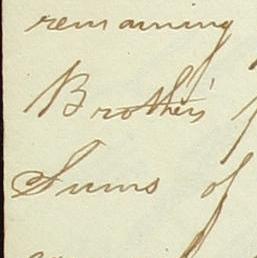 remaining
Brother's
Sums of